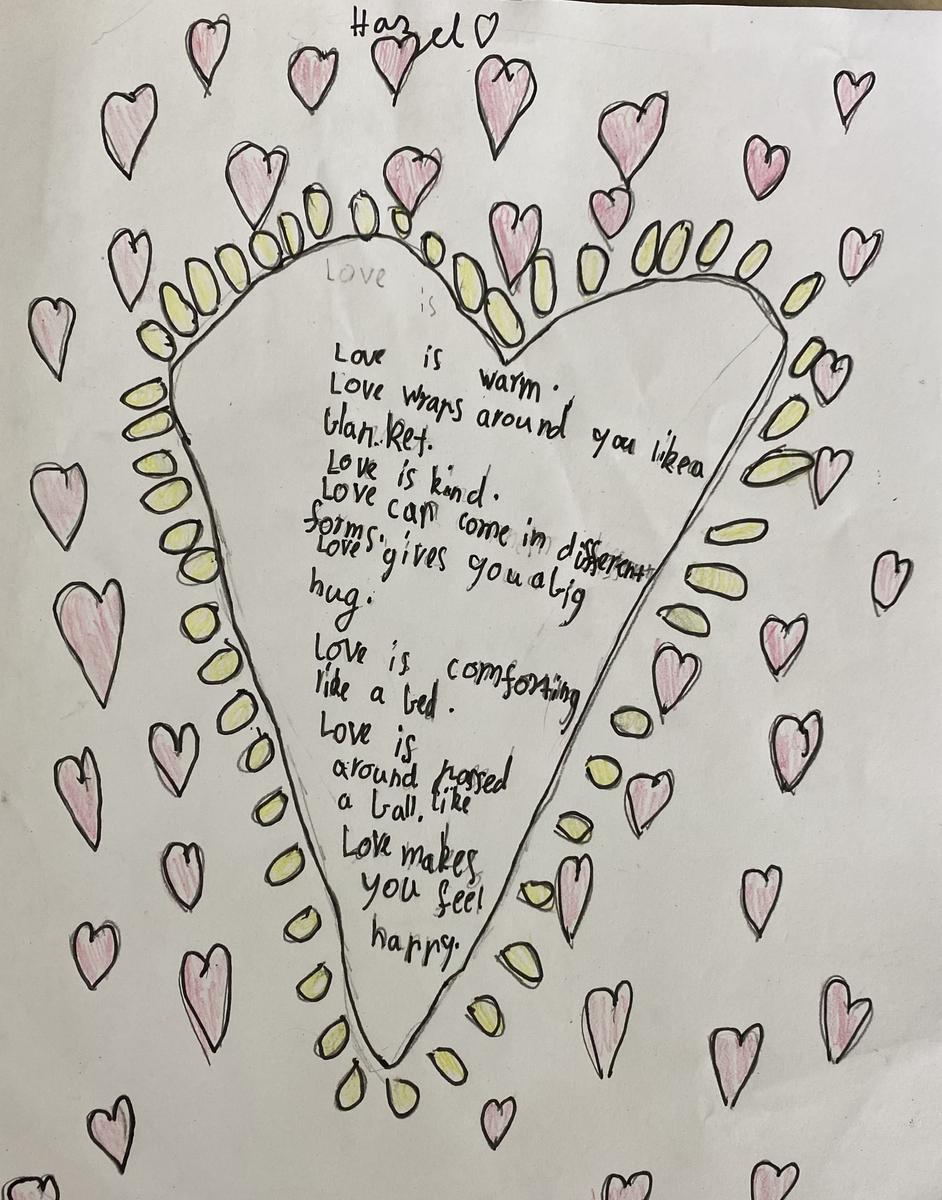 Hazel
Love
is
Love is warm.
Love wraps around you like a
blanket.
Love is kind.
Love can come in different
forms.
Love gives you a big
hug.
Love is comforting
like a bed.
Love is
around passed
a ball. like
Love makes
you feel
happy.